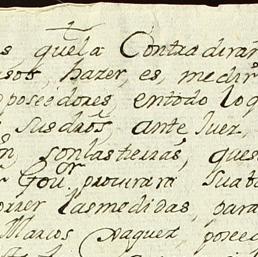 s quela Contradiran
sos, hazer, es medir
poseedores, entodo loq
sus dros, ante Juez,
n, son las tierras, que s
r Gov.r procurara su ab
orrer las medidas, para
Marcos Vaquez, posee